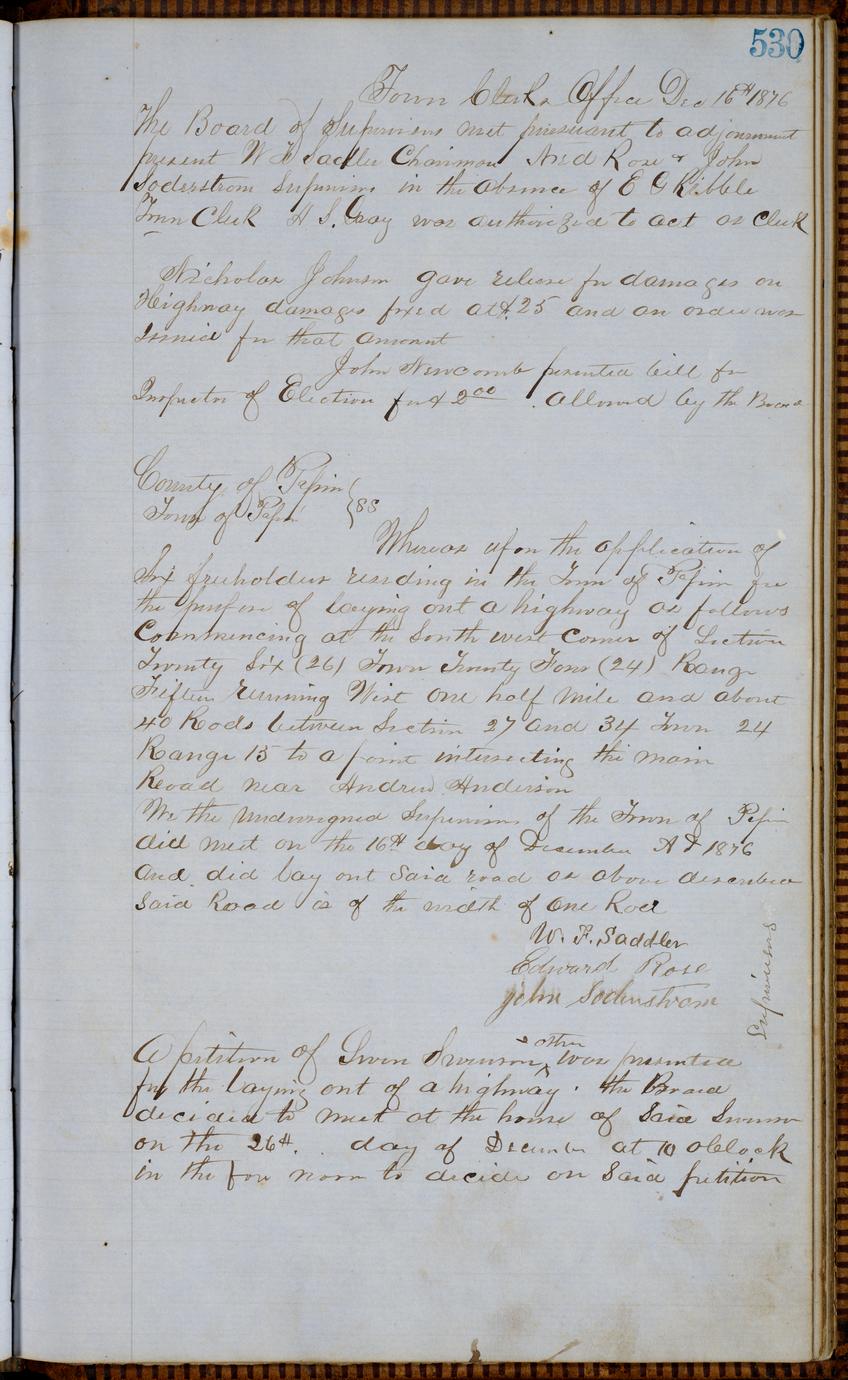 530
Town Clerks Office Dec 16th 1876
The Board of Supervisors met pursuant to adjournment
present W F Sadler Chairman And Rose & John
Soderstrom Supervisors in the absence of E G Ribble
Town Clerk H S. Gray was authorized to act as Clerk
Nicholas Johnson gave release for damages on
Highway damages fixed at $.25 and an order was
Issued for that amount
John Newcomb presented bill for
Inspector of Election for $ 2 00 . allowed by the Board
County of Pepin
Town of Pepin } SS
Whereas upon the application of
Six freeholders residing in the Town of Pepin for
the purpose of laying out a highway as follows
Commencing at the South west corner of Section
Twenty Six (26) Town Twenty Four (24) Range
Fifteen running West one half mile and about
40 Rods between Section 27 and 34 Town 24
Range 15 to a point intersecting the main
Road near Andrew Anderson
We the Undersigned Supervisors of the Town of Pepin
did meet on the 16th day of December AD 1876
and did lay out Said road as above described
Said Road is of the width of One Rod
W. F. Saddler
Edward Rose
John Soderstrom
Supervisors
A petition of Swen Swenson & other was presented
for the laying out of a highway. the Board
decided to meet at the house of Said Swenson
on the 26th. . day of December at 10 oClock
in the fore noon to decide on Said petition